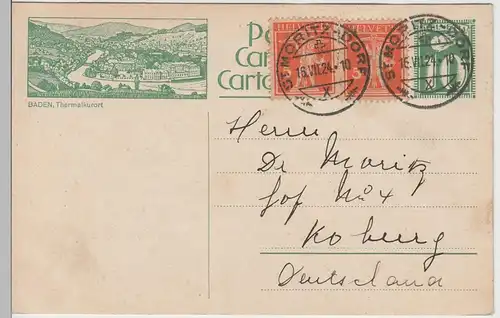 BADEN, Thermalkurort
Po
Car
Carto
HELVETIA HELVETIA
ST MORITZ-DORF
16.VII.24.-10
X
ST MORITZ-DORF
16.VII.24.-10
X
Herrn
Dr Moritz
Hof No 4
Koburg
Deutschland